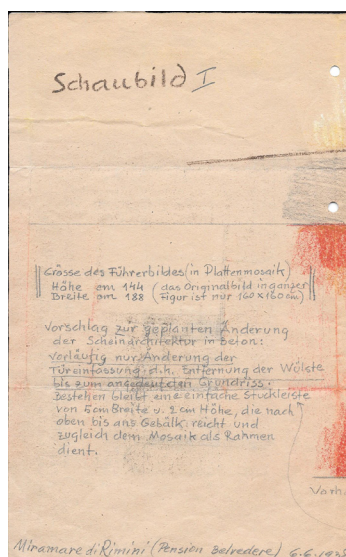 Schaubild I
Grösse des Führerbildes (in Plattenmosaik)
Höhe cm 144 (das Originalbild in ganzer
Breite cm 188 Figur ist nur 160 x 160 cm)
Vorschlag zur geplanten Änderung
der Scheinarchitektur in Beton:
Vorläufig nur Änderung der
Türeinfassung, d.h. Entfernung der Wülste
bis zum angedeuteten Grundriss.
Bestehen bleibt eine einfache Stuckleiste
von 5 cm Breite u. 2 cm Höhe, die nach
oben bis ans Gebälk reicht und
zugleich dem Mosaik als Rahmen
dient.
Vorh
Miramare di Rimini (Pension Belvedere) 6.6.193